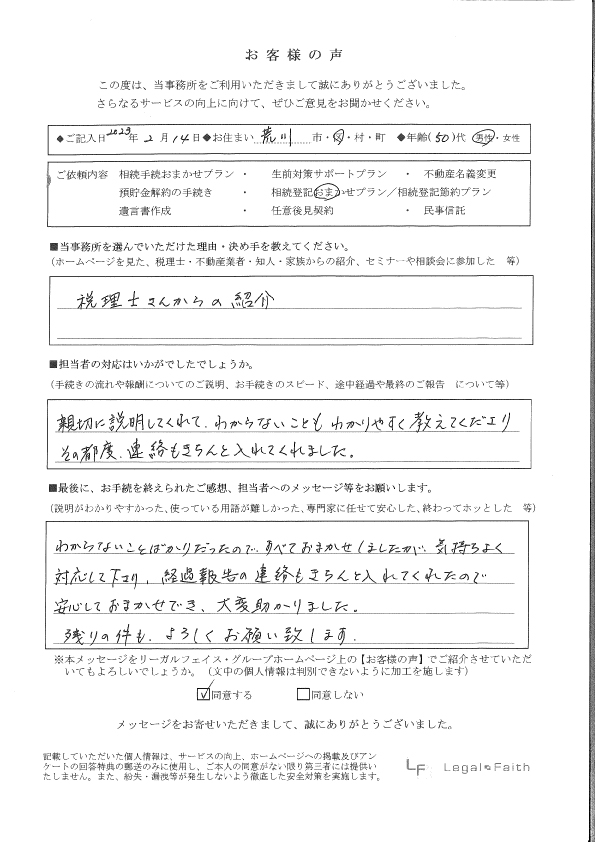 お客様の声
この度は、当事務所をご利用いただきまして誠にありがとうございました。
さらなるサービスの向上に向けて、ぜひご意見をお聞かせください。
◆ご記入日 2023年 2月 14日 ◆お住まい 荒川 市・区・村・町 ◆年齢(50)代 男性・女性
ご依頼内容 相続手続おまかせプラン ・ 生前対策サポートプラン ・ 不動産名義変更
預貯金解約の手続き ・ 相続登記おまかせプラン／相続登記節約プラン
遺言書作成 ・ 任意後見契約 ・ 民事信託
■当事務所を選んでいただけた理由・決め手を教えてください。
（ホームページを見た、税理士・不動産業者・知人・家族からの紹介、セミナーや相談会に参加した 等）
税理士さんからの紹介
■担当者の対応はいかがでしたでしょうか。
（手続きの流れや報酬についてのご説明、お手続きのスピード、途中経過や最終のご報告 について等）
親切に説明してくれて、わからないことも わかりやすく教えてくださり
その都度、連絡もきちんと入れてくれました。
■最後に、お手続を終えられたご感想、担当者へのメッセージ等をお願いします。
（説明がわかりやすかった、使っている用語が難しかった、専門家に任せて安心した、終わってホッとした 等）
わからないことばかりだったので、すべておまかせしましたが、気持ちよく
対応して下さり、経過報告の連絡もきちんと入れてくれたので
安心しておまかせでき、大変助かりました。
残りの件も、よろしくお願い致します。
※本メッセージをリーガルフェイス・グループホームページ上の【お客様の声】でご紹介させていただ
いてもよろしいでしょうか。（文中の個人情報は判別できないように加工を施します）
☑同意する □同意しない
メッセージをお寄せいただきまして、誠にありがとうございました。
記載していただいた個人情報は、サービスの向上、ホームページへの掲載及びアン
ケートの回答特典の郵送のみに使用し、ご本人の同意がない限り第三者には提供い
たしません。また、紛失・漏洩等が発生しないよう徹底した安全対策を実施します。
LF Legal Faith